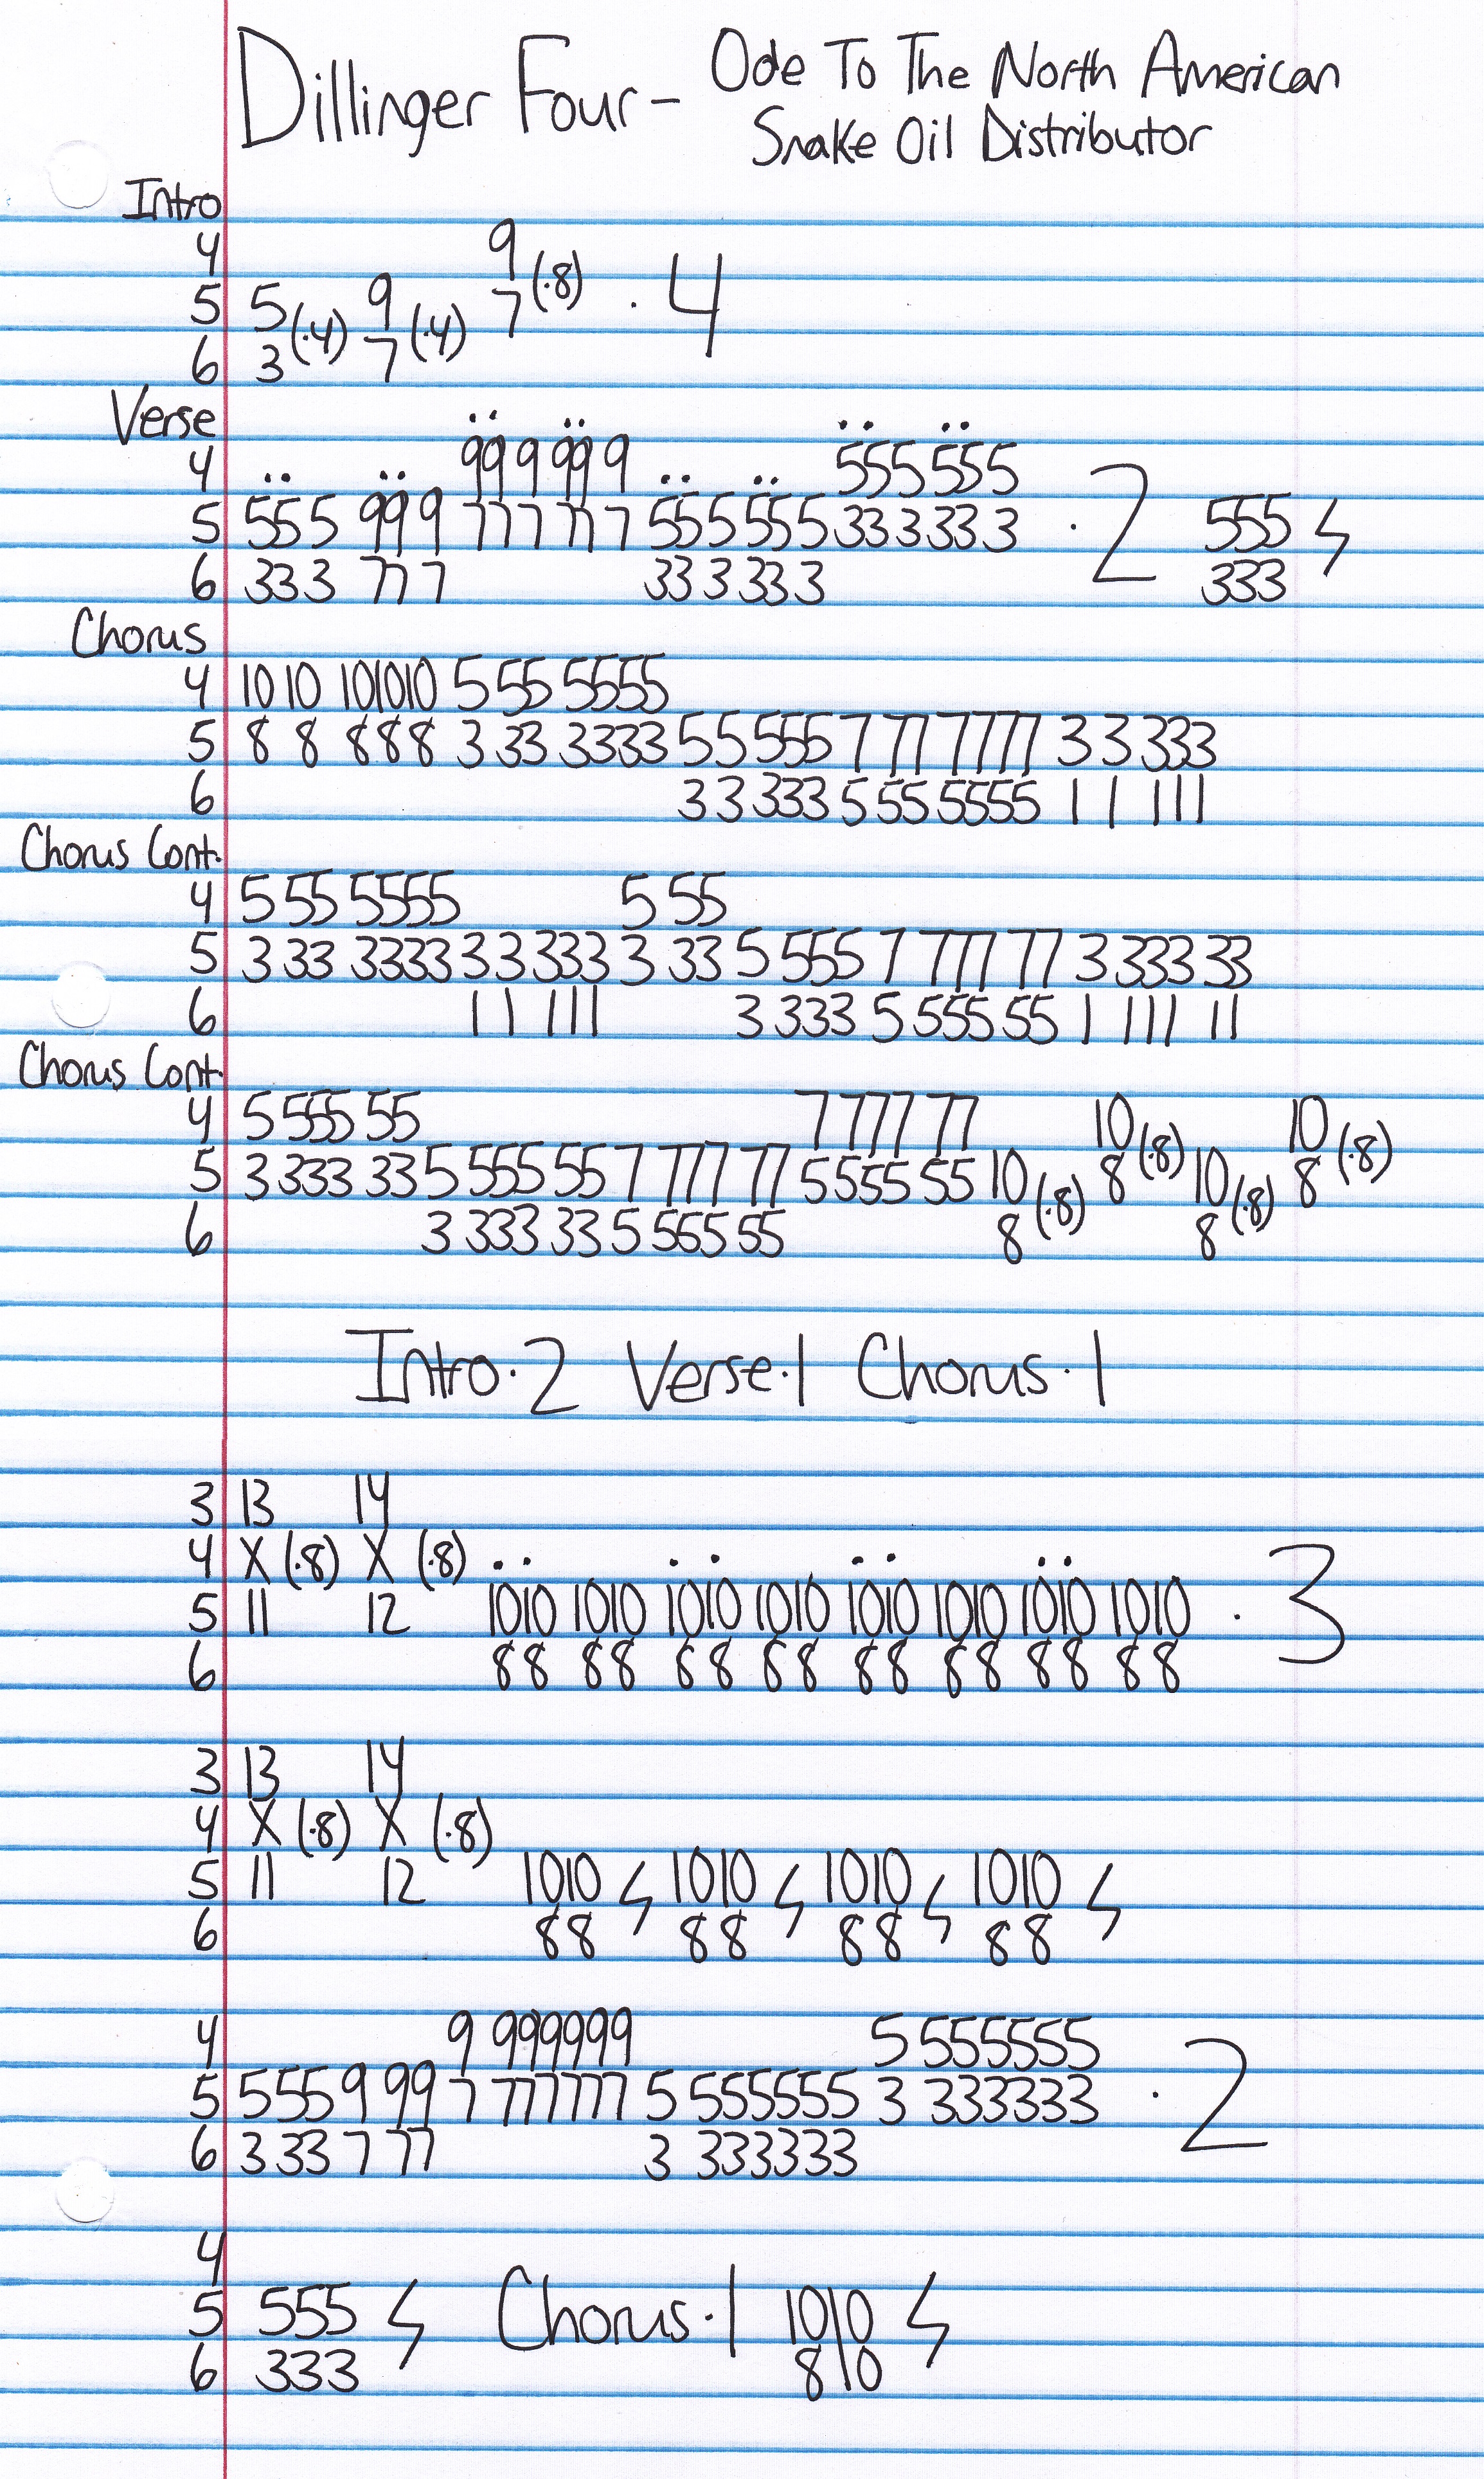 Dillinger Four - Ode To The North American
Snake Oil Distributor
Intro
4 9
5 5 (·4) 9 (·4) 7 (·8) · 4
6 3 7
Verse
4 999 999 555 555
5 555 999 777 777 555 555 333 333 · 2 555
6 333 777 333 333 333
Chorus
4 10 10 10 10 10 5 55 5555
5 8 8 8 8 8 3 33 3333 5 5 555 7 77 7777 3 3 333
6 3 3 333 5 55 5555 1 1 111
Chorus Cont.
4 5 55 5555 5 55
5 3 33 3333 3 3 333 3 33 5 555 7 777 77 3 333 33
6 1 1 111 3 333 5 555 55 1 111 11
Chorus Cont.
4 5 555 55 7 777 77 10 10
5 3 333 33 5 555 55 7 777 77 5 555 55 10 (·8) 8 (·8) 10 (·8) 8 (·8)
6 3 333 33 5 555 55 8 8
Intro·2 Verse·1 Chorus·1
3 13 14
4 X (·8) X (·8)
5 11 12 1010 1010 1010 1010 1010 1010 1010 1010 · 3
6 88 88 88 88 88 88 88 88
3 13 14
4 X (·8) X (·8)
5 11 12 1010 1010 1010 1010
6 88 88 88 88
4 9 999999 5 555555
5 5 55 9 99 7 777777 5 555555 3 333333 · 2
6 3 33 7 77 3 333333
4
5 555 Chorus·1 1010
6 333 8 10